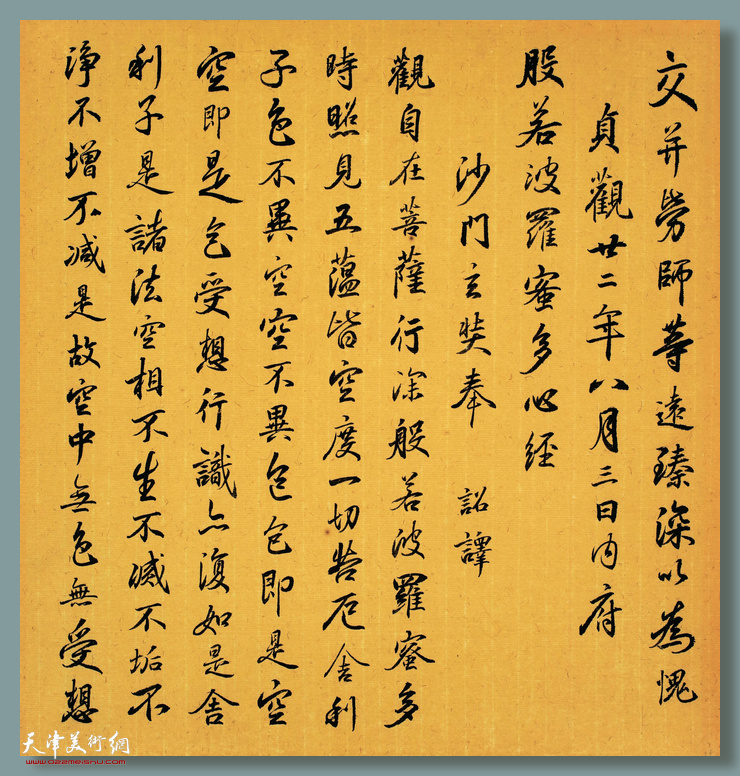 交并勞師等遠臻深以為愧
貞觀廿二年八月三日內府
般若波羅蜜多心經
沙門玄奘奉 詔譯
觀自在菩薩行深般若波羅蜜多
時照見五蘊皆空度一切苦厄舍利
子色不異空空不異色色即是空
空即是色受想行識亦復如是舍
利子是諸法空相不生不滅不垢不
淨不增不減是故空中無色無受想
天津美術網
www.022meishu.com